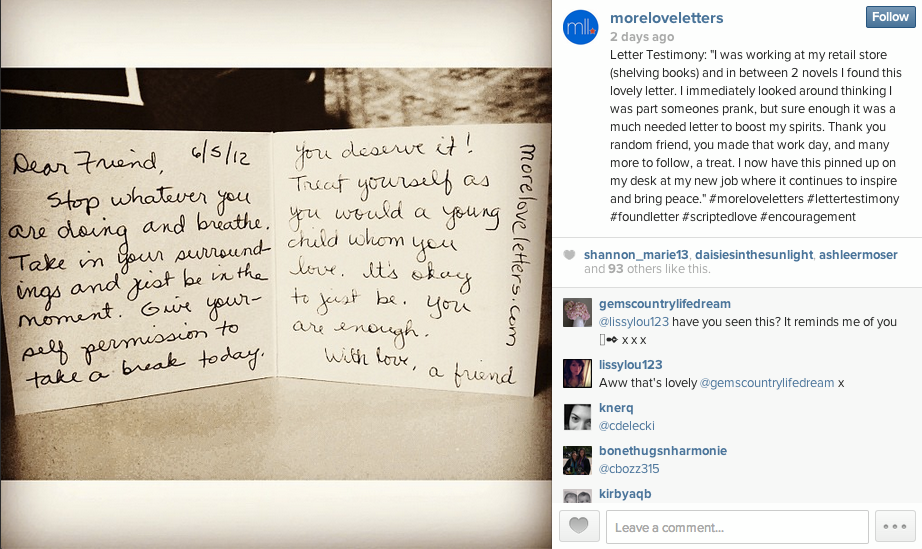 Dear Friend, 6/5/12
Stop whatever you
are doing and breathe.
Take in your surround-
ings and just be in the
moment. Give your-
self permission to
take a break today.
you deserve it!
Treat yourself as
you would a young
child whom you
love. It's okay
to just be. You
are enough.
With love,
a friend
moreloveletters.com
mll
moreloveletters
Follow
2 days ago
Letter Testimony: "I was working at my retail store
(shelving books) and in between 2 novels I found this
lovely letter. I immediately looked around thinking I
was part someones prank, but sure enough it was a
much needed letter to boost my spirits. Thank you
random friend, you made that work day, and many
more to follow, a treat. I now have this pinned up on
my desk at my new job where it continues to inspire
and bring peace." #moreloveletters #lettertestimony
#foundletter #scriptedlove #encouragement
shannon_marie13, daisiesinthesunlight, ashleermoser
and 93 others like this.
gemscountrylifedream
@lissylou123 have you seen this? It reminds me of you
x x x
lissylou123
Aww that's lovely @gemscountrylifedream x
knerq
@cdelecki
bonethugsnharmonie
@cbozz315
kirbyaqb
Leave a comment...